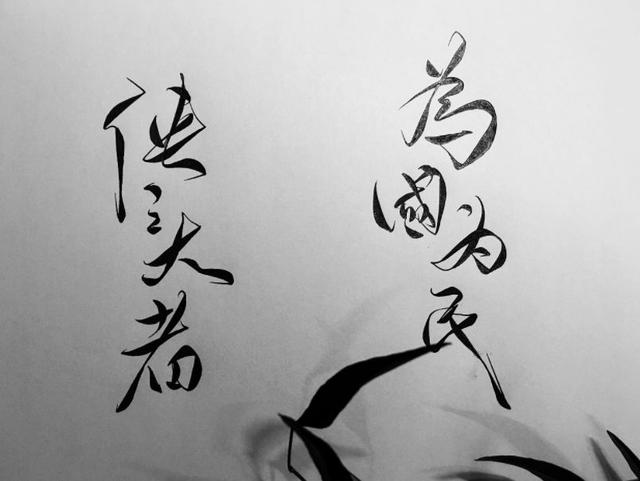 為國为民
俠之大者